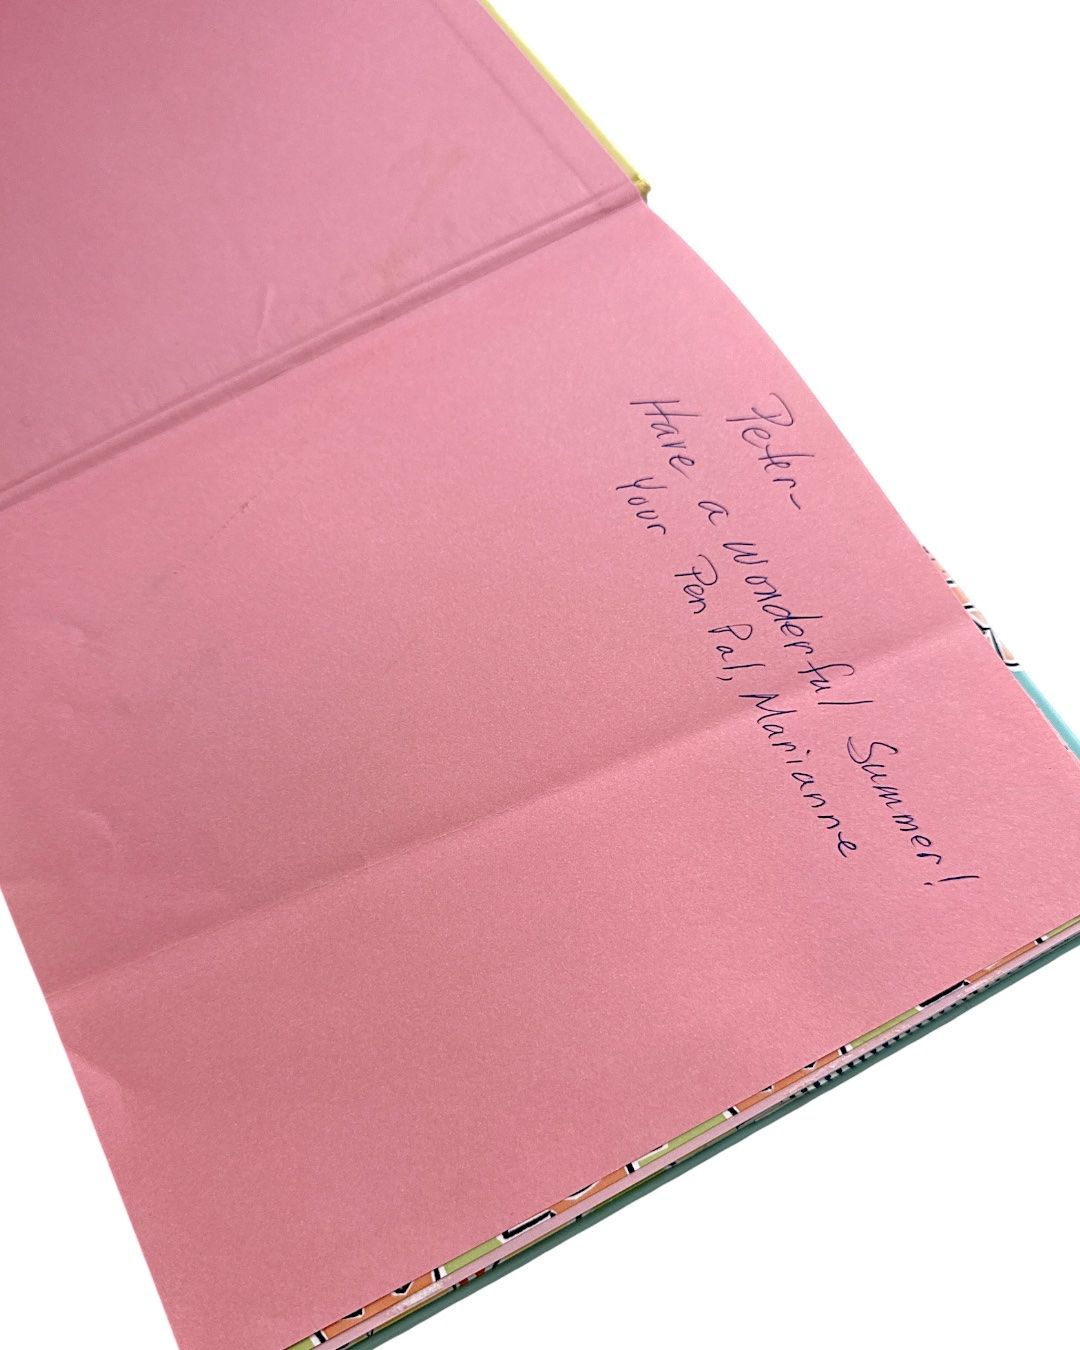 Peter-
Have a wonderful Summer!
Your Pen Pal, Marianne